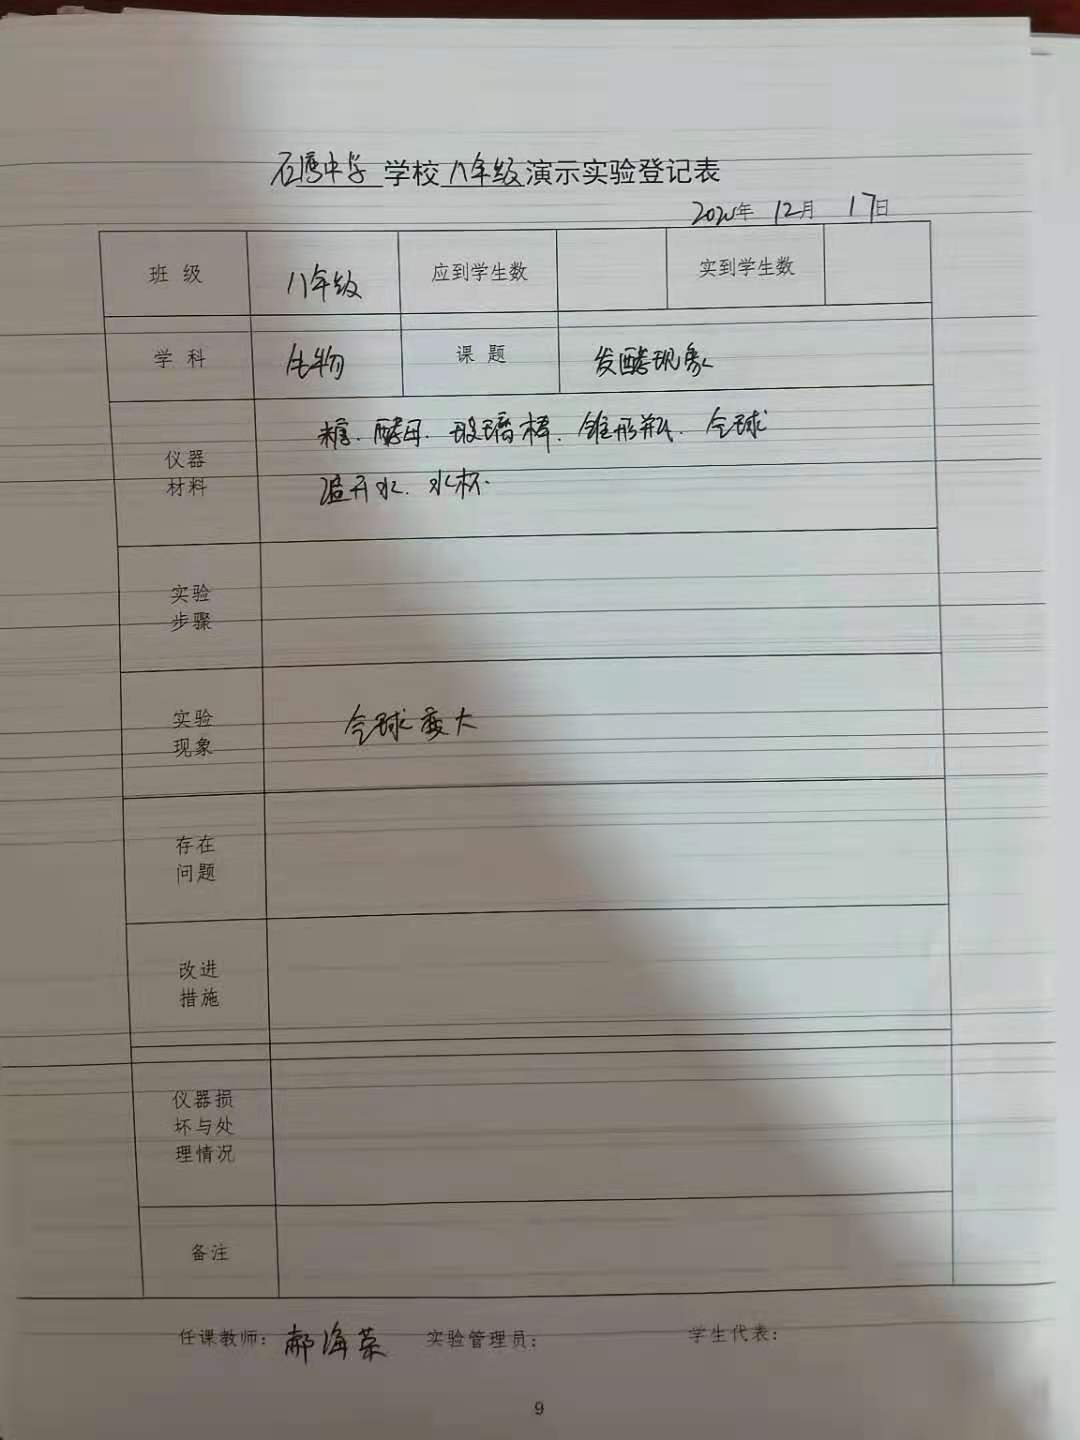 石湾中学 学校 八年级 演示实验登记表
2020年 12月 17日
班 级 八年级 应到学生数 实到学生数
学 科 生物 课 题 发酵现象
仪器
材料
糖、酵母、玻璃棒、锥形瓶、气球
温开水、水杯.
实验
步骤
实验
现象
气球变大
存在
问题
改进
措施
仪器损
坏与处
理情况
备注
任课教师: 郝海荣 实验管理员: 学生代表:
9